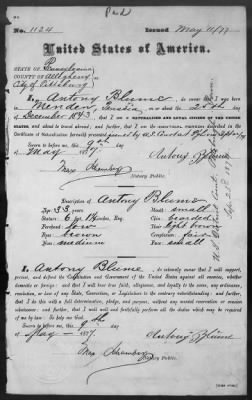 Pa
No. 1124 Issued May 11/77
United States of America.
STATE OF Pennsylvania
COUNTY OF Allegheny
City of Pittsburg
I, Antony Blume do swear that I was born
in Menden, Prussia, on or about the 25th day
of December 1843; that I am a NATURALIZED AND LOYAL CITIZEN OF THE UNITED
STATES, and about to travel abroad; and further, that I am the IDENTICAL PERSON described in the
Certificate of Naturalization herewith
Sworn to before me, this 9th day
of May 1877. Antony Blume
Max Schamberg
Notary Public.
Description of Antony Blume
Age: 33 years Mouth: small
Stature: 5 feet Inches, Eng. Chin: bearded
Forehead: low Hair: light brown
Eyes: brown Complexion: fair
Nose: medium Face: small
I, Antony Blume, do solemnly swear that I will support,
protect, and defend the Constitution and Government of the United States against all enemies, whether
domestic or foreign; and that I will bear true faith, allegiance, and loyalty to the same, any ordinance,
resolution, or law of any State, Convention, or Legislature to the contrary notwithstanding; and further,
that I do this with a full determination, pledge, and purpose, without any mental reservation or evasion
whatsoever; and further, that I will well and faithfully perform all the duties which may be required
of me by law: So help me God.
Sworn to before me, this 9th day
of May 1877. Antony Blume
Max Schamberg
Notary Public.